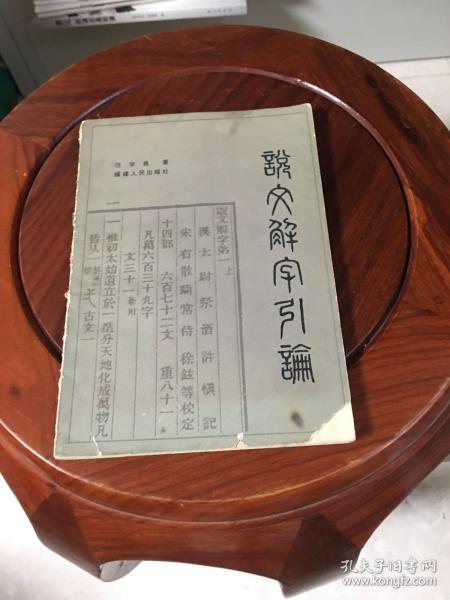 說文解字引論
任学良 著
福建人民出版社
說文解字第一上
漢太尉祭酒許慎記
宋右散騎常侍徐鉉等校定
十四部 六百七十二文 重八十一
凡萬六百三十九字
文三十一新附
一 惟初太始道立於一造分天地化成萬物凡
古文一
孔夫子旧书网
www.kongfz.com